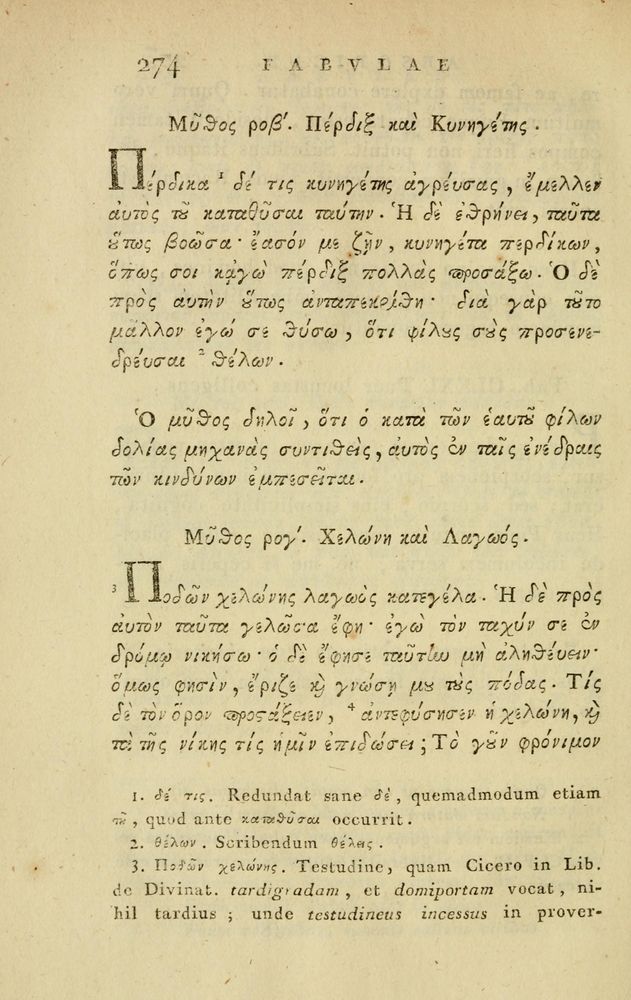 274 FABVLAE
Μῦθος ροβʹ. Πέρδιξ καὶ Κυνηγέτης.
Πέρδικα ¹ δέ τις κυνηγέτης ἀγρεύσας, ἔμελλεν
αὐτὸς τȣ̃ καταθῦσαι ταύτην. Ἡ δὲ ἐθρήνει, ταῦτα
ȣ̔́τως βοῶσα· ἔασόν με ζῇν, κυνηγέτα περδίκων,
ὅπως σοι κᾀγὼ πέρδιξ πολλὰς προσάξω. Ὁ δὲ
πρὸς αὐτὴν ȣ̔́τως ἀνταπεκρίθη· διὰ γὰρ τȣ̃το
μᾶλλον ἐγώ σε θύσω, ὅτι φίλȣς σȣ̀ς προσενε-
δρεῦσαι ² θέλων.
Ὁ μῦθος δηλοῖ, ὅτι ὁ κατὰ τῶν ἑαυτȣ̃ φίλων
δολίας μηχανὰς συντιθεὶς, αὐτὸς ἐν ταῖς ἐνέδραις
τῶν κινδύνων ἐμπεσεῖται.
Μῦθος ρογʹ. Χελώνη καὶ Λαγωός.
³ Ποδῶν χελώνης λαγωὸς κατεγέλα. Ἡ δὲ πρὸς
αὐτὸν ταῦτα γελῶσα ἔφη· ἐγὼ τὸν ταχύν σε ἐν
δρόμῳ νικήσω· ὁ δὲ ἔφησε ταῦτην μὴ ἀληθέυειν·
ὅμως φησὶν, ἔριζε ϗ γνώσῃ μȣ τȣ̀ς πόδας. Τίς
δὲ τὸν ὅρον προστάξειεν, ⁴ ἀντεφύσησεν ἡ χελώνη, ϗ
τὰ τῆς νίκης τίς ἡμῖν ἐπιδώσει; Τὸ γȣ̃ν φρόνιμον
1. δέ τις. Redundat sane δέ, quemadmodum etiam
τȣ̃, quod ante καταθῦσαι occurrit.
2. θέλων. Scribendum θέλεις.
3. Ποδῶν χελώνης. Testudine, quam Cicero in Lib.
de Divinat. tardigradam, et domiportam vocat, ni-
hil tardius; unde testudineus incessus in prover-